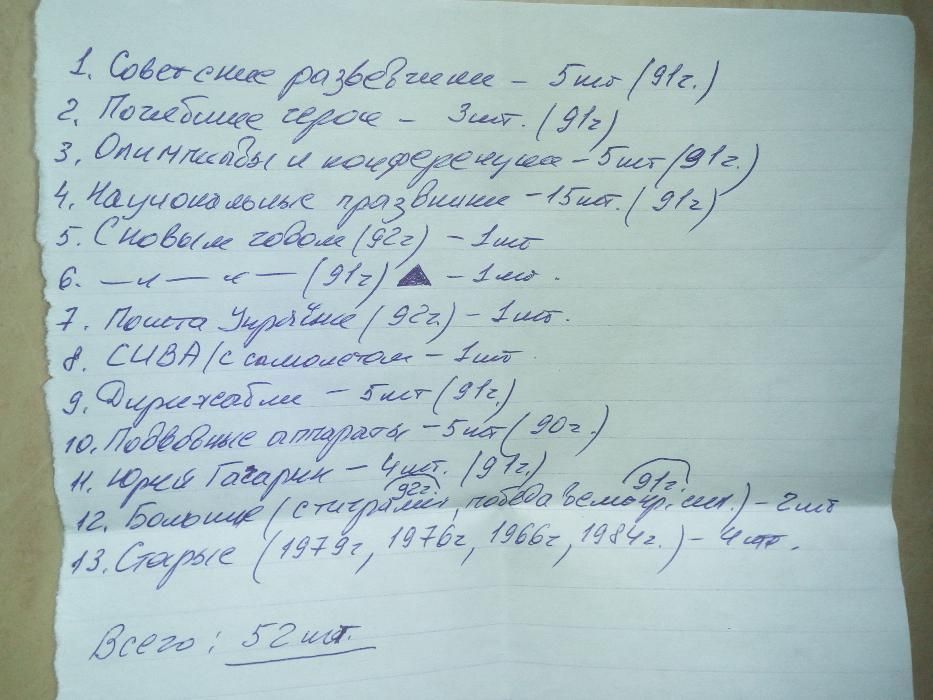 1. Советские разведчики – 5шт (91г.)
2. Погибшие герои – 3шт. (91г)
3. Олимпиады и конференции – 5шт (91г.)
4. Национальные праздники – 15шт. (91г)
5. С новым годом (92г) – 1шт
6. — „ — „ — (91г) ▲ – 1шт.
7. Пошта Украïни (92г.) – 1шт.
8. СИВА (с самолетом – 1шт
9. Дирижабли – 5шт (91г.)
10. Подводные аппараты – 5шт (90г.)
11. Юрий Гагарин – 4шт. (91г.)
92г. 91г.
12. Большие (с тиграми, победа демокр. сил.) – 2шт
13. Старые (1979г, 1976г, 1966г, 1984г.) – 4шт.
Всего: 52шт.